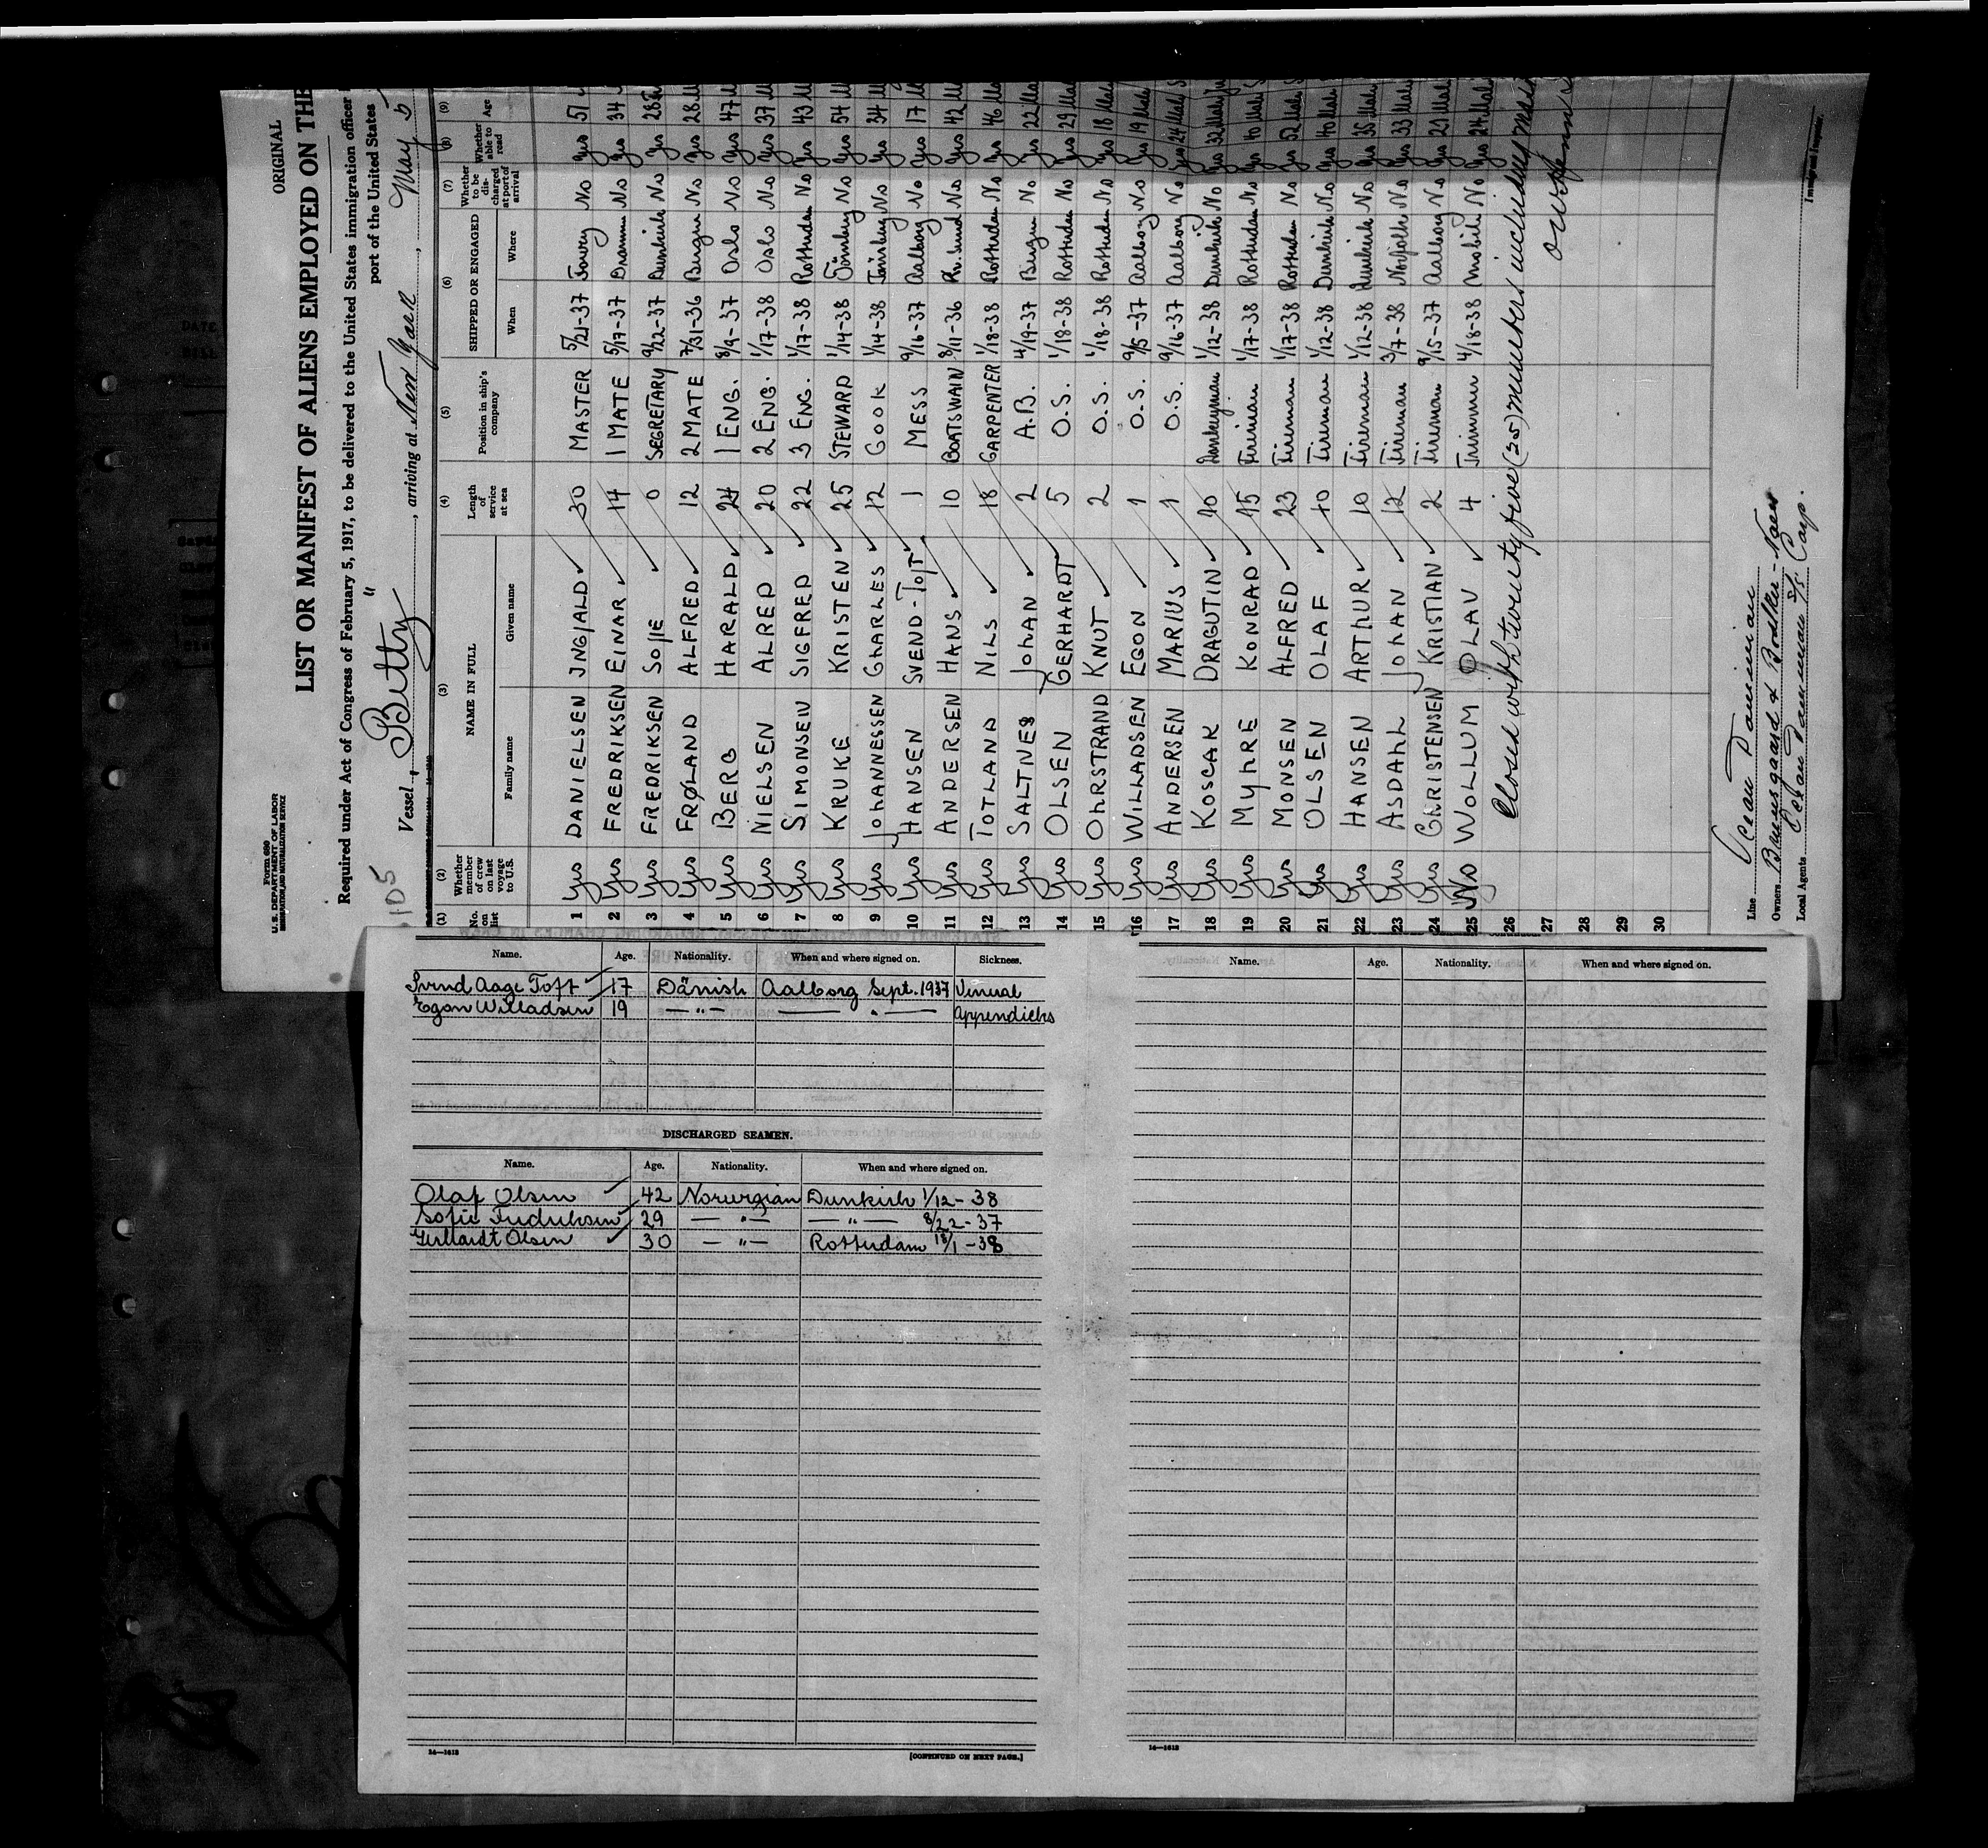 Form 680
U.S. DEPARTMENT OF LABOR
IMMIGRATION AND NATURALIZATION SERVICE
ORIGINAL
LIST OR MANIFEST OF ALIENS EMPLOYED ON THE
Required under Act of Congress of February 5, 1917, to be delivered to the United States immigration officer
port of the United States
105
Vessel, "Betty", arriving at New York, May 5
(1) No. on list (2) Whether member of crew on last voyage to U.S. (3) NAME IN FULL Family name Given name (4) Length of service at sea (5) Position in ship's company (6) SHIPPED OR ENGAGED When Where (7) Whether to be discharged at port of arrival (8) Whether able to read (9) Age
1 Yes DANIELSEN INGJALD 30 MASTER 5/21-37 Fowey No Yes 51
2 Yes FREDRIKSEN EINAR 14 1 MATE 5/17-37 No Yes 34
3 Yes FREDRIKSEN SOFIE 0 SEGRETARY 9/22-37 Dunkirk No Yes 28
4 Yes FRØLAND ALFRED 12 2 MATE 7/31-36 Bergen No Yes 28
5 Yes BERG HARALD 24 1 ENG. 8/9-37 Oslo No Yes 47
6 Yes NIELSEN ALRED 20 2 ENG. 1/17-38 Oslo No Yes 37
7 Yes SIMONSEN SIGFRED 22 3 ENG. 1/17-38 Rotterdam No Yes 43
8 Yes KRUKE KRISTEN 25 STEWARD 1/14-38 Tönsberg No Yes 54
9 Yes JOHANNESSEN CHARLES 12 COOK 1/14-38 Tönsberg No Yes 34
10 Yes HANSEN SVEND-TOFT 1 MESS 9/16-37 Aalborg No Yes 17
11 Yes ANDERSEN HANS 10 BOATSWAIN 8/11-36 No Yes 42
12 Yes TOTLAND NILS 18 CARPENTER 1/18-38 Rotterdam No Yes 46
13 Yes SALTNES JOHAN 2 A.B. 4/19-37 Bergen No Yes 22
14 Yes OLSEN GERHARDT 5 O.S. 1/18-38 Rotterdam No Yes 29
15 Yes OHRSTRAND KNUT 2 O.S. 1/18-38 Rotterdam No Yes 18
16 Yes WILLADSEN EGON 1 O.S. 9/5-37 Aalborg No Yes 19
17 Yes ANDERSEN MARIUS 1 O.S. 9/16-37 Aalborg No Yes 24
18 Yes KOSCAK DRAGUTIN 10 Donkeyman 1/12-38 Dunkirk No Yes 32
19 Yes MYHRE KONRAD 15 Fireman 1/17-38 Rotterdam No Yes 40
20 Yes MONSEN ALFRED 23 Fireman 1/17-38 Rotterdam No Yes 52
21 Yes OLSEN OLAF 10 Fireman 1/12-38 Dunkirk No Yes 40
22 Yes HANSEN ARTHUR 10 Fireman 1/12-38 Dunkirk No Yes 35
23 Yes ASDAHL JOHAN 12 Fireman 3/7-38 Norfolk No Yes 33
24 Yes CHRISTENSEN KRISTIAN 2 Fireman 9/15-37 Aalborg No Yes
25 No WOLLUM OLAV 4 Trimmer 4/18-38 Mobile No Yes 24
26 Closed with twenty five (25) members including
27
28
29
30
Line Ocean Dominion
Owners
Local Agents Ocean Dominion S/S. Corp.
Name. Age. Nationality. When and where signed on. Sickness.
Svend Aage Toft 17 Danish Aalborg Sept. 1937 Veneral
Egon Willadsen 19 — " — — " — Appendicks
DISCHARGED SEAMEN.
Name. Age. Nationality. When and where signed on.
Olaf Olsen 42 Norwegian Dunkirk 1/12-38
Sofie Fredriksen 29 — " — — " — 8/22-37
Gerhardt Olsen 30 — " — Rotterdam 18/1-38
14—1613
[CONTINUED ON NEXT PAGE.]
Name. Age. Nationality. When and where signed on.
14—1613